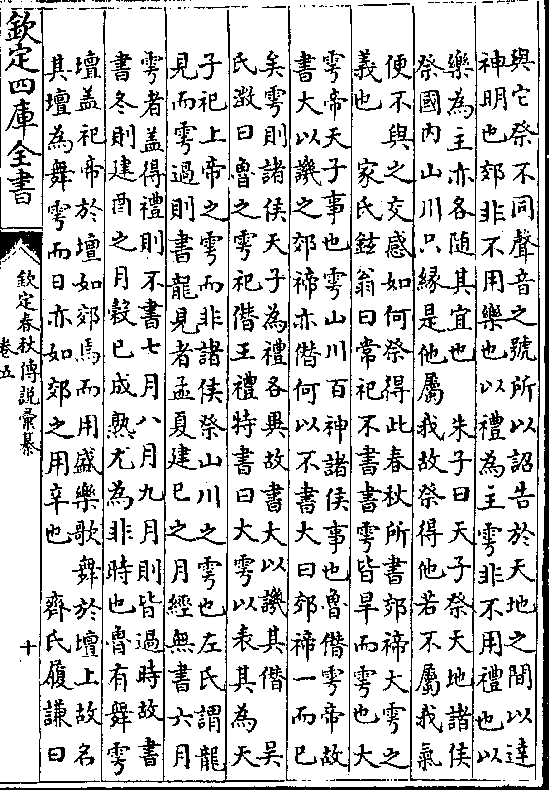 與它祭不同聲音之號所以詔告於天地之間以達
神明也郊非不用樂也以禮為主雩非不用禮也以
樂為主亦各隨其宜也　朱子曰天子祭天地諸侯
祭國内山川只緣是他屬我故祭得他若不屬我氣
便不與之交感如何祭得此春秋所書郊禘大雩之
義也　家氏鉉翁曰常祀不書書雩皆旱而雩也大
雩帝天子事也雩山川百神諸侯事也魯僭雩帝故
書大以譏之郊禘亦僭何以不書大曰郊禘一而已
矣雩則諸侯天子為禮各異故書大以譏其僭　吳
氏澂曰魯之雩祀僭王禮特書曰大雩以表其為天
子祀上帝之雩而非諸侯祭山川之雩也左氏謂龍
見而雩過則書龍見者孟夏建巳之月經無書六月
雩者盖得禮則不書七月八月九月則皆過時故書
書冬則建酉之月穀已成熟尤為非時也魯有舞雩
壇盖祀帝於壇如郊焉而用盛樂歌舞於壇上故名
其壇為舞雩而日亦如郊之用辛也　齊氏履謙曰
欽定四庫全書
欽定春秋傳說彙纂
卷五
十